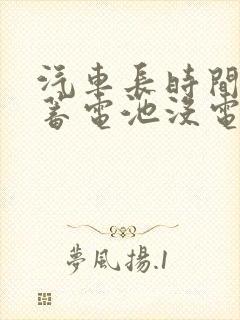 汽車長時間
蓄電池沒電
夢風揚.1